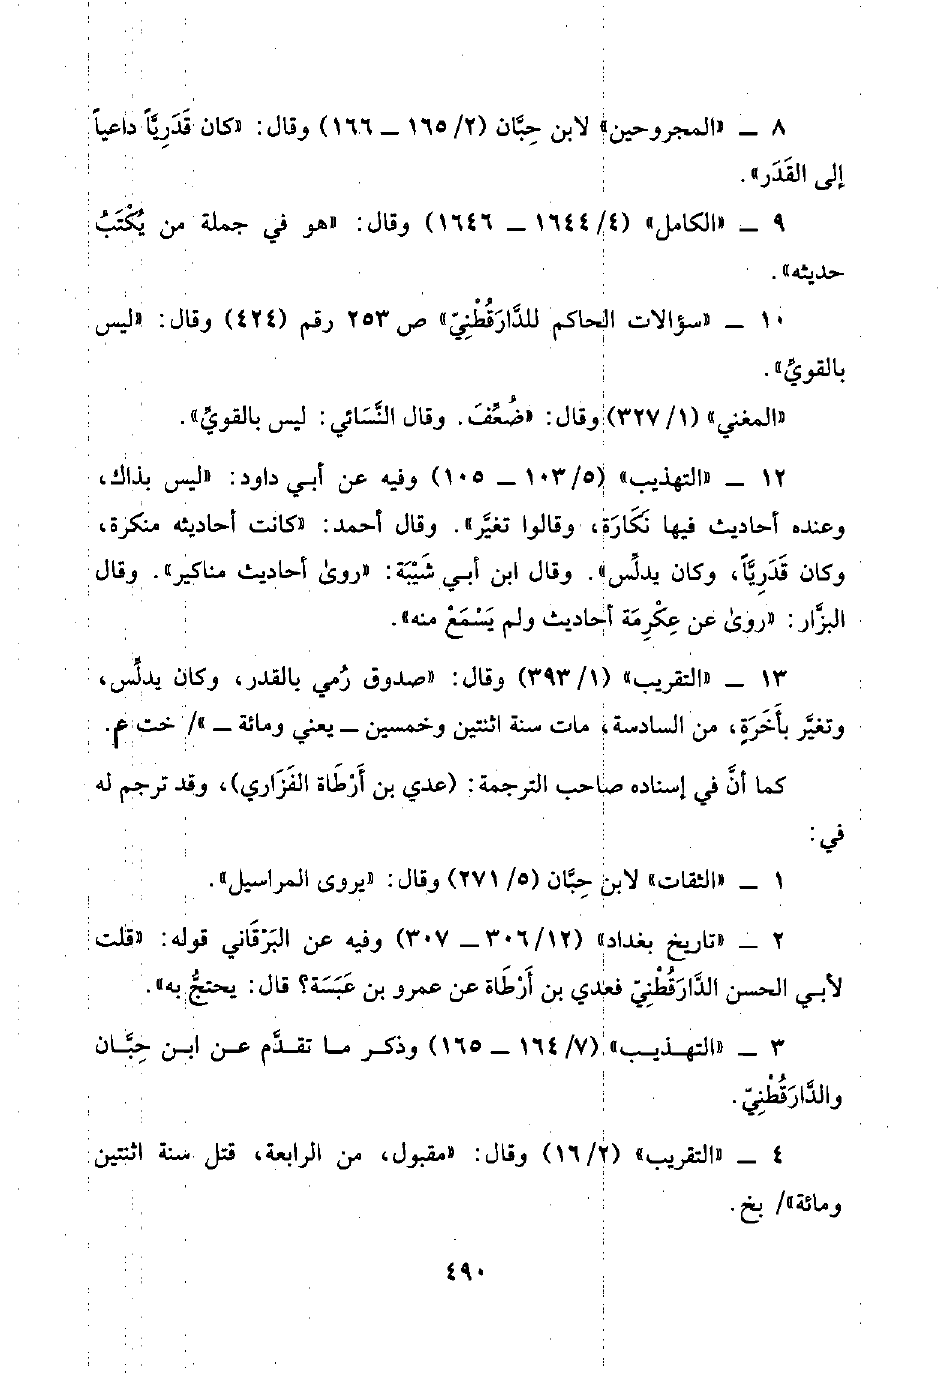 ٨ ــ «المجروحين» لابن حِبَّان (٢/ ١٦٥ ــ ١٦٦) وقال: «كان قَدَرِيَّاً داعياً
إلى القَدَر».
٩ ــ «الكامل» (٤/ ١٦٤٤ ــ ١٦٤٦) وقال: «هو في جملة من يُكْتَبُ
حديثه».
١٠ ــ «سؤالات الحاكم للدَّارَقُطْنِيّ» ص ٢٥٣ رقم (٤٢٤) وقال: «ليس
بالقويِّ».
«المغني» (١/ ٣٢٧) وقال: «ضُعِّفَ. وقال النَّسَائي: ليس بالقويِّ».
١٢ ــ «التهذيب» (٥/ ١٠٣ ــ ١٠٥) وفيه عن أبي داود: «ليس بذاك،
وعنده أحاديث فيها نَكَارَة، وقالوا تغيَّر». وقال أحمد: «كانت أحاديثه منكرة،
وكان قَدَرِيَّاً، وكان يدلِّس». وقال ابن أبي شَيْبَة: «روىٰ أحاديث مناكير». وقال
البزَّار: «روىٰ عن عِكْرِمَة أحاديث ولم يَسْمَعْ منه».
١٣ ــ «التقريب» (١/ ٣٩٣) وقال: «صدوق رُمي بالقدر، وكان يدلِّس،
وتغيَّر بأَخَرَةٍ، من السادسة، مات سنة اثنتين وخمسين ــ يعني ومائة ــ »/ خت ٤.
كما أنَّ في إسناده صاحب الترجمة: (عدي بن أَرْطَاة الفَزَاري)، وقد ترجم له
في:
١ ــ «الثقات» لابن حِبَّان (٥/ ٢٧١) وقال: «يروى المراسيل».
٢ ــ «تاريخ بغداد» (١٢/ ٣٠٦ ــ ٣٠٧) وفيه عن البَرْقَاني قوله: «قلت
لأبي الحسن الدَّارَقُطْنِيّ فعدي بن أَرْطَاة عن عمرو بن عَبَسَة؟ قال: يحتجُّ به».
٣ ــ «التهذيب» (٧/ ١٦٤ ــ ١٦٥) وذكر ما تقدَّم عن ابن حِبَّان
والدَّارَقُطْنِيّ.
٤ ــ «التقريب» (٢/ ١٦) وقال: «مقبول، من الرابعة، قتل سنة اثنتين
ومائة»/ بخ.
٤٩٠